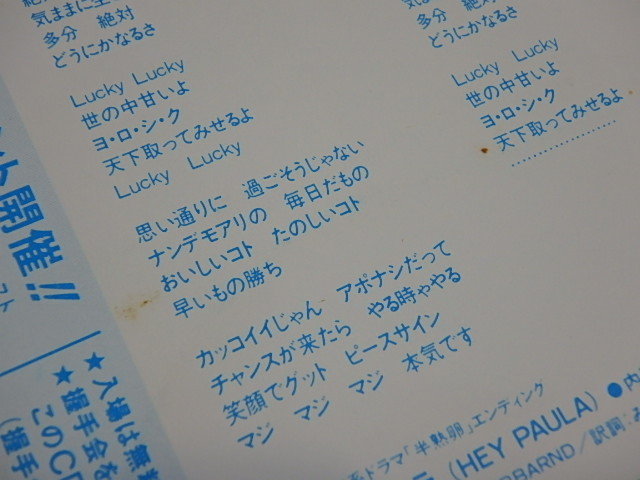 気ままに生
多分　絶対
どうにかなるさ
Lucky　Lucky
世の中甘いよ
ヨ・ロ・シ・ク
天下取ってみせるよ
Lucky　Lucky
思い通りに　過ごそうじゃない
ナンデモアリの　毎日だもの
おいしいコト　たのしいコト
早いもの勝ち
カッコイイじゃん　アポナシだって
チャンスが来たら　やる時ゃやる
笑顔でグット　ピースサイン
マジ　マジ　マジ　本気です
多分　絶対
どうにかなるさ
Lucky　Lucky
世の中甘いよ
ヨ・ロ・シ・ク
天下取ってみせるよ
………………
ト開催!!
スト
★入場は無料
★握手会を
このCD
(握手
系ドラマ「半熟卵」エンディング
(HEY PAULA) ●内
RBARND/訳詞:み